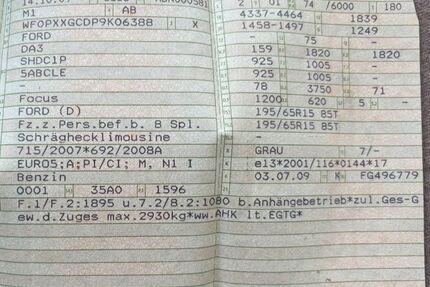 2 01 74 /6000 180
M1 AB 4337-4464 1839
WF0PXXGCDP9K06388 X 1458-1497 1249
FORD - 75 -
DA3 159 1820 1820
SHDC1P 925 1005 -
5ABCLE 925 1005 -
- 78 3750 71
Focus 1200 620 5 -
FORD (D) 195/65R15 85T
Fz.z.Pers.bef.b. 8 Spl. 195/65R15 85T
Schräghecklimousine -
715/2007*692/2008A GRAU 7/-
EURO5;A;PI/CI; M, N1 I e13*2001/116*0144*17
Benzin 03.07.09 K FG496779
0001 35A0 1596
F.1/F.2:1895 u.7.2/8.2:1080 b.Anhängebetrieb*zul.Ges-G
ew.d.Zuges max.2930kg*ww.AHK lt.EGTG*